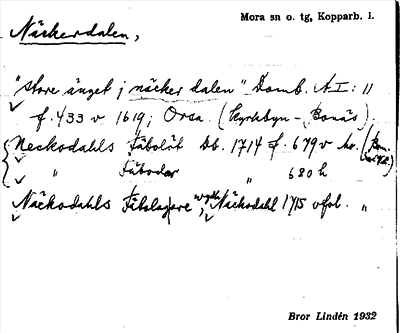 Mora sn o. tg, Kopparb. l.
Näckerdalen,
"store änget j näcker dalen" Domb. A I: 11
f. 433 v 1619; Orsa. (Kyrkbyn-Bonäs).
Neckodahls Fäbolöt Db. 1714 f. 679 v ho.
" Fäbodar " 680 h
Näckodahls Näckodahl 1715 vfol. "
Bror Lindén 1932